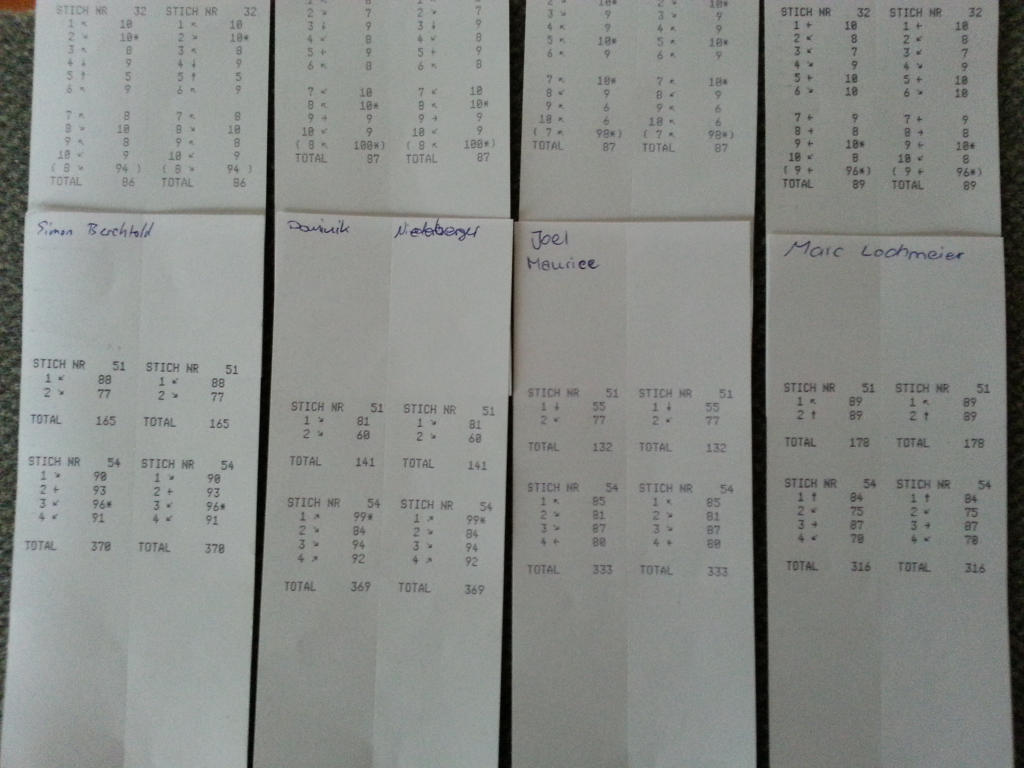 STICH NR 32 STICH NR 32
1 ↖ 10 1 ↖ 10
2 ↘ 10* 2 ↘ 10*
3 ↖ 8 3 ↖ 8
4 ↓ 9 4 ↓ 9
5 ↑ 5 5 ↑ 5
6 ↖ 9 6 ↖ 9
7 ↖ 8 7 ↖ 8
8 ↘ 10 8 ↘ 10
9 ↖ 8 9 ↖ 8
10 ↙ 9 10 ↙ 9
( 8 ↘ 94 ) ( 8 ↘ 94 )
TOTAL 86 TOTAL 86
2 ↘ 7 2 ↘ 7
3 ↓ 9 3 ↓ 9
4 ↙ 8 4 ↙ 8
5 → 9 5 → 9
6 ↖ 8 6 ↖ 8
7 ↙ 10 7 ↙ 10
8 ↖ 10* 8 ↖ 10*
9 → 9 9 → 9
10 ↙ 9 10 ↙ 9
( 8 ↖ 100*) ( 8 ↖ 100*)
TOTAL 87 TOTAL 87
2 ↘ 10* 2 ↘ 10*
3 ↘ 9 3 ↘ 9
4 ↖ 9 4 ↖ 9
5 ↖ 10* 5 ↖ 10*
6 ↖ 9 6 ↖ 9
7 ↖ 10* 7 ↖ 10*
8 ↙ 9 8 ↙ 9
9 ↖ 6 9 ↖ 6
10 ↖ 6 10 ↖ 6
( 7 ↖ 98*) ( 7 ↖ 98*)
TOTAL 87 TOTAL 87
STICH NR 32 STICH NR 32
1 ← 10 1 ← 10
2 ↙ 8 2 ↙ 8
3 ↙ 7 3 ↙ 7
4 ↘ 9 4 ↘ 9
5 ← 10 5 ← 10
6 ↘ 10 6 ↘ 10
7 ← 9 7 ← 9
8 → 8 8 → 8
9 ← 10* 9 ← 10*
10 ↙ 8 10 ↙ 8
( 9 ← 96*) ( 9 ← 96*)
TOTAL 89 TOTAL 89
Simon Berchtold
STICH NR 51 STICH NR 51
1 ↙ 88 1 ↙ 88
2 ↘ 77 2 ↘ 77
TOTAL 165 TOTAL 165
STICH NR 54 STICH NR 54
1 ↘ 90 1 ↘ 90
2 ← 93 2 ← 93
3 ↙ 96* 3 ↙ 96*
4 ↙ 91 4 ↙ 91
TOTAL 370 TOTAL 370
Dominik Niederberger
STICH NR 51 STICH NR 51
1 ↘ 81 1 ↘ 81
2 ↘ 60 2 ↘ 60
TOTAL 141 TOTAL 141
STICH NR 54 STICH NR 54
1 ↗ 99* 1 ↗ 99*
2 ↘ 84 2 ↘ 84
3 ↘ 94 3 ↘ 94
4 ↗ 92 4 ↗ 92
TOTAL 369 TOTAL 369
Joel
Maurice
STICH NR 51 STICH NR 51
1 ↓ 55 1 ↓ 55
2 ↙ 77 2 ↙ 77
TOTAL 132 TOTAL 132
STICH NR 54 STICH NR 54
1 ↖ 85 1 ↖ 85
2 ↘ 81 2 ↘ 81
3 ↘ 87 3 ↘ 87
4 ← 80 4 ← 80
TOTAL 333 TOTAL 333
Marc Lochmeier
STICH NR 51 STICH NR 51
1 ↖ 89 1 ↖ 89
2 ↑ 89 2 ↑ 89
TOTAL 178 TOTAL 178
STICH NR 54 STICH NR 54
1 ↑ 84 1 ↑ 84
2 ↙ 75 2 ↙ 75
3 → 87 3 → 87
4 ↙ 70 4 ↙ 70
TOTAL 316 TOTAL 316